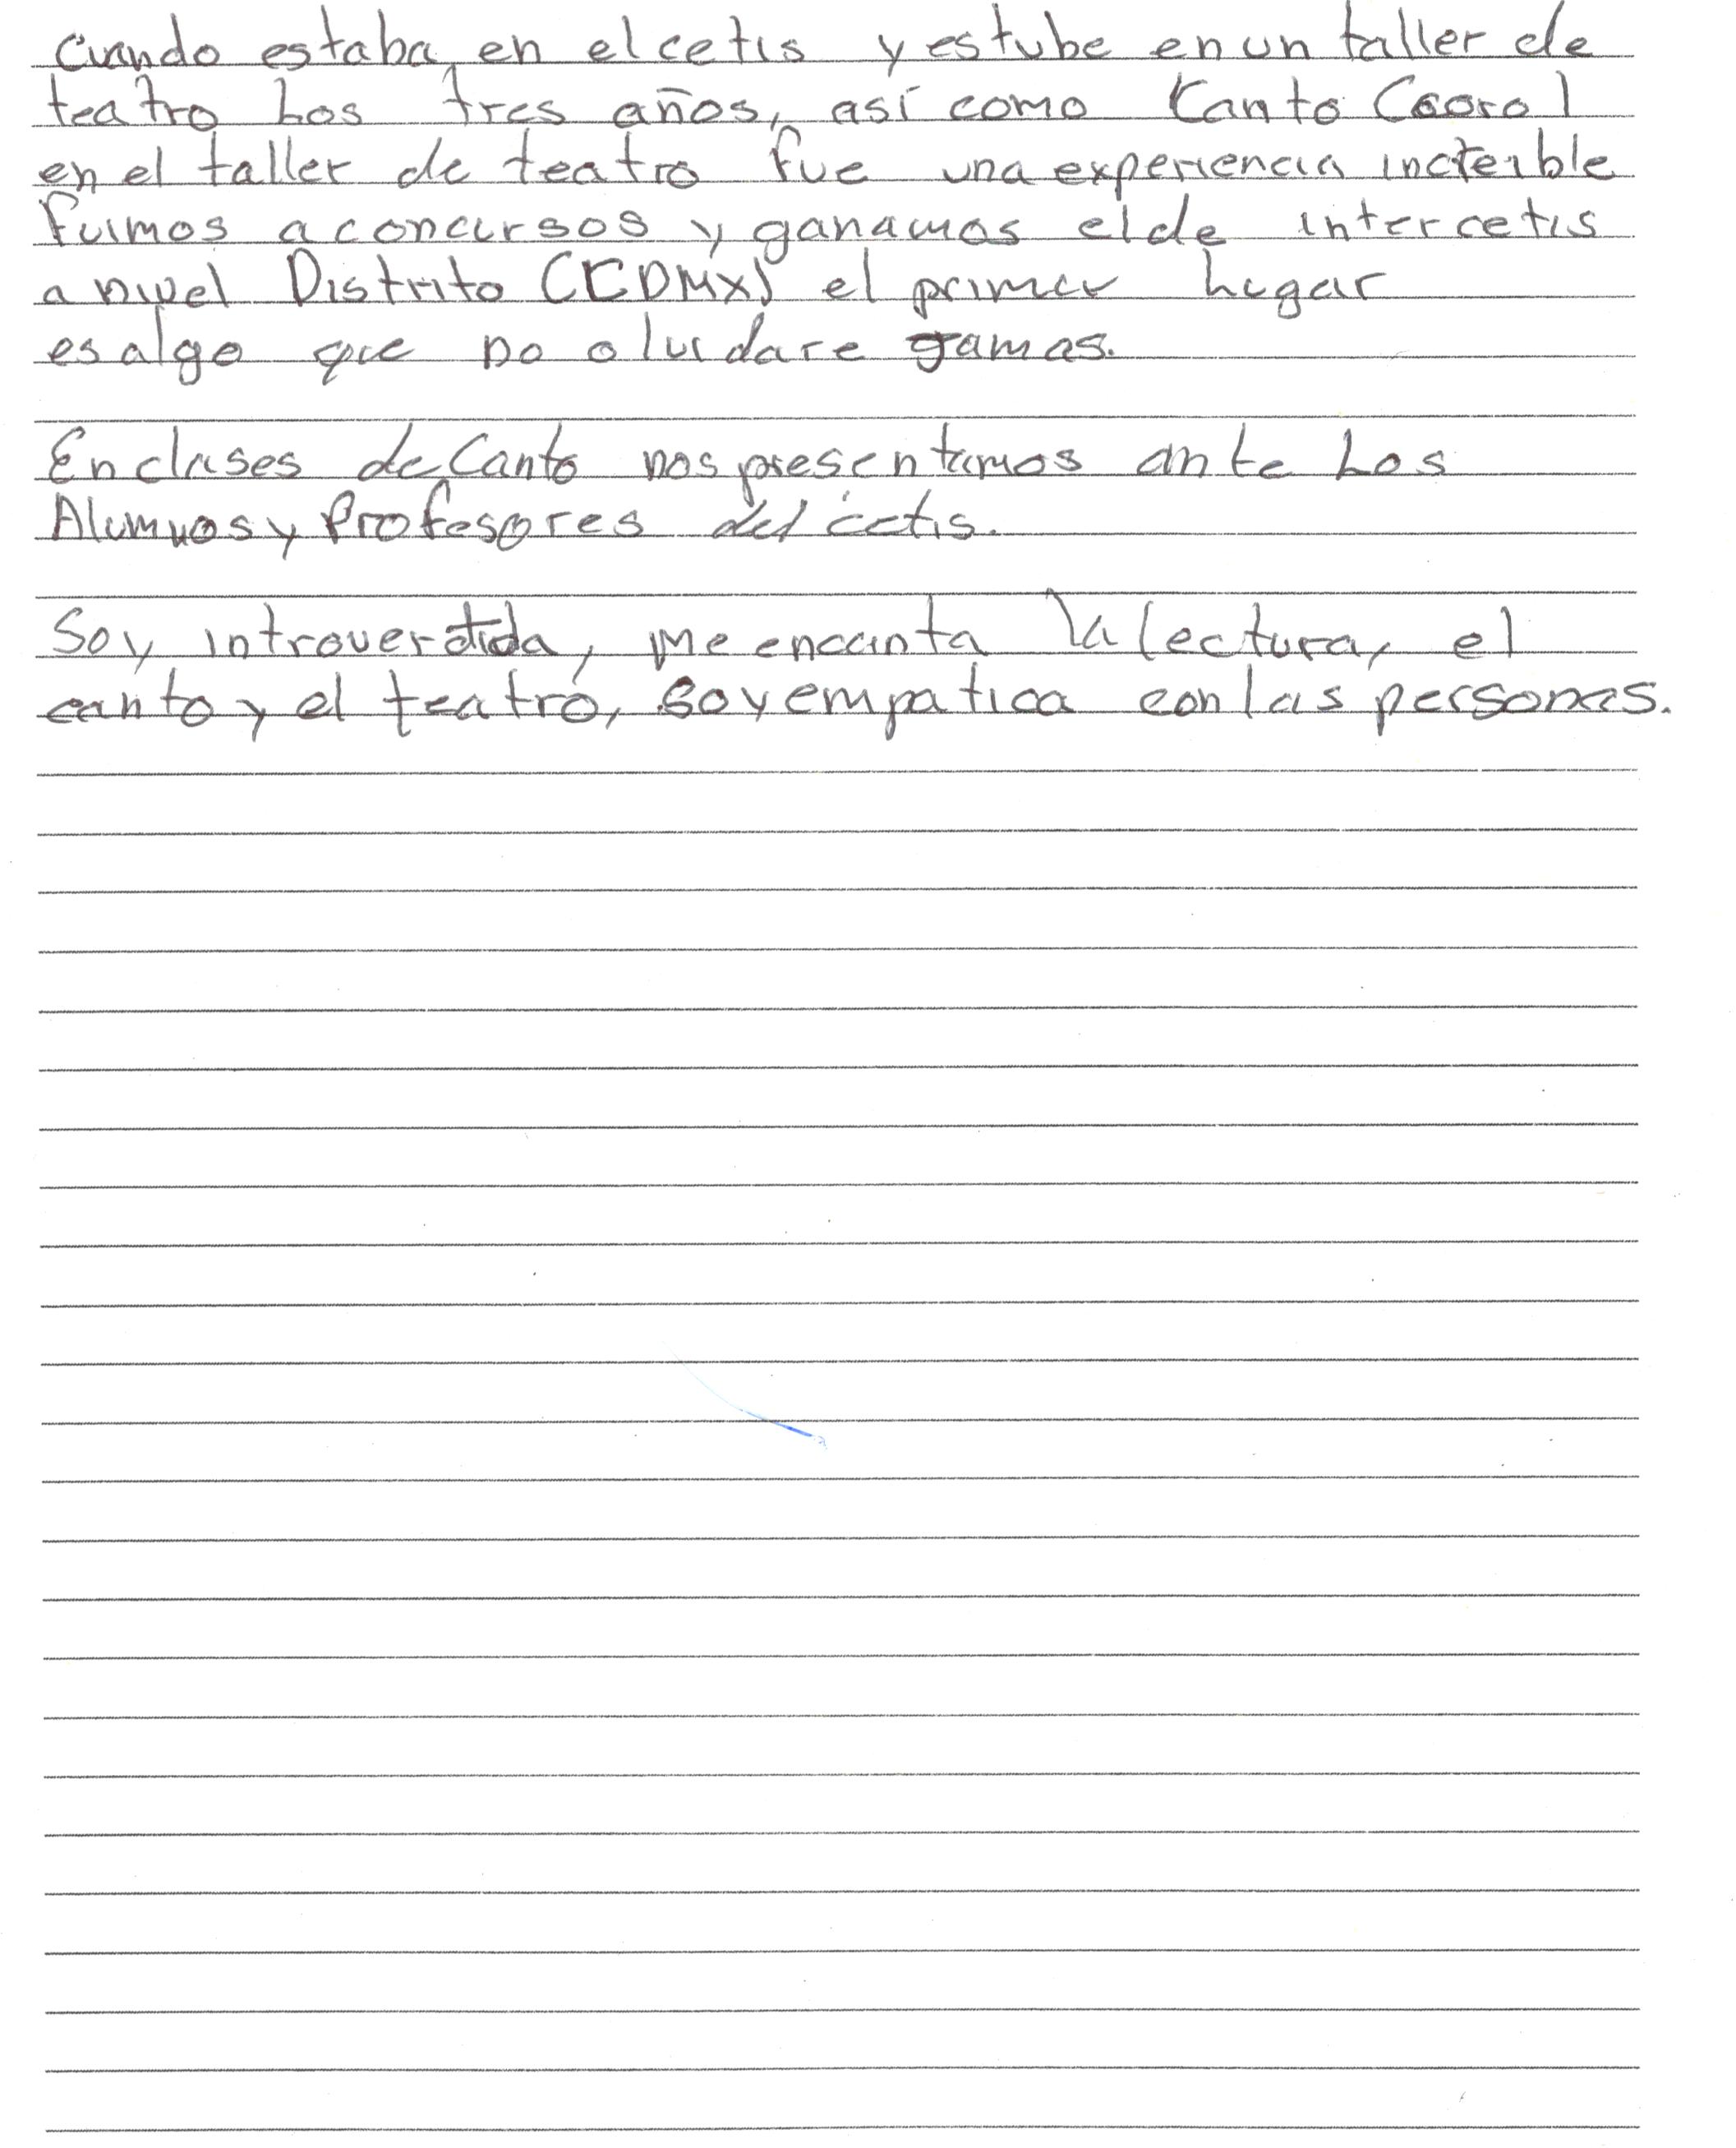 Cuando estaba en el cetis y estube en un taller de
teatro Los tres años, así como Canto Cooral
en el taller de teatro fue una experiencia increible
fuimos a concursos y ganamos el de intercetis
a nivel Distrito (CDMX) el primer lugar
es algo que no olvidare jamas.
En clases de Canto nos presentamos ante Los
Alumnos y Profesores del cetis.
Soy introvertida, me encanta la lectura, el
canto y el teatro, soy empatica con las personas.